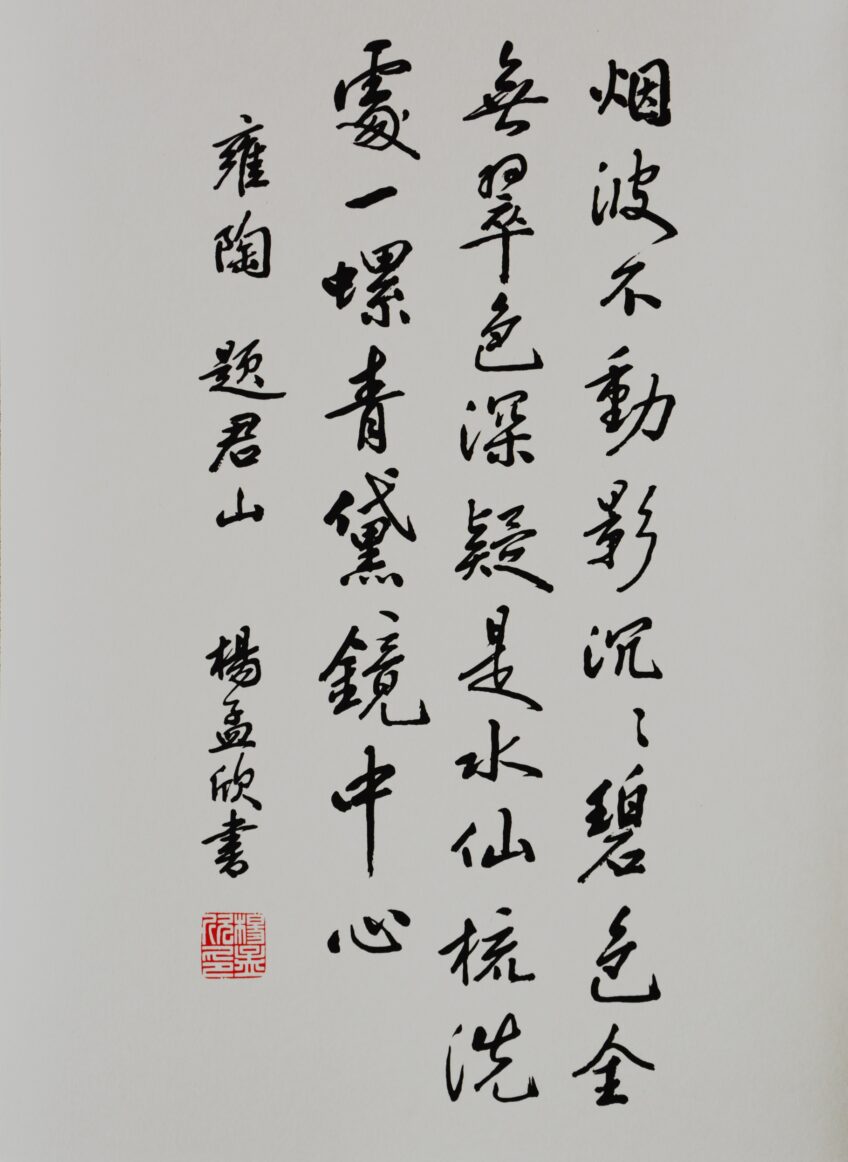 烟波不動影沉〻碧色全
無翠色深疑是水仙梳洗
處一螺青黛鏡中心
雍陶 题君山 楊孟欣書
楊孟欣印